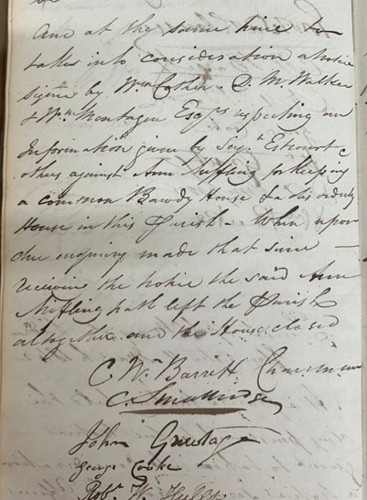 And at the same time to
take into consideration a notice
signed by Wm Cother D. M. Walker
& Wm Montague Esqrs respecting an
Information given by Serjt Estcourt &
others against Ann Niffling for keeping
a common Bawdy House & a disorderly
House in this Parish - When upon
due enquiry made that since
receiving the notice the said Ann
Niffling hath left the Parish
altogether and the House closed
C. Wm Barrett Chairman
C Smallridge
John
George Cooke
Robt